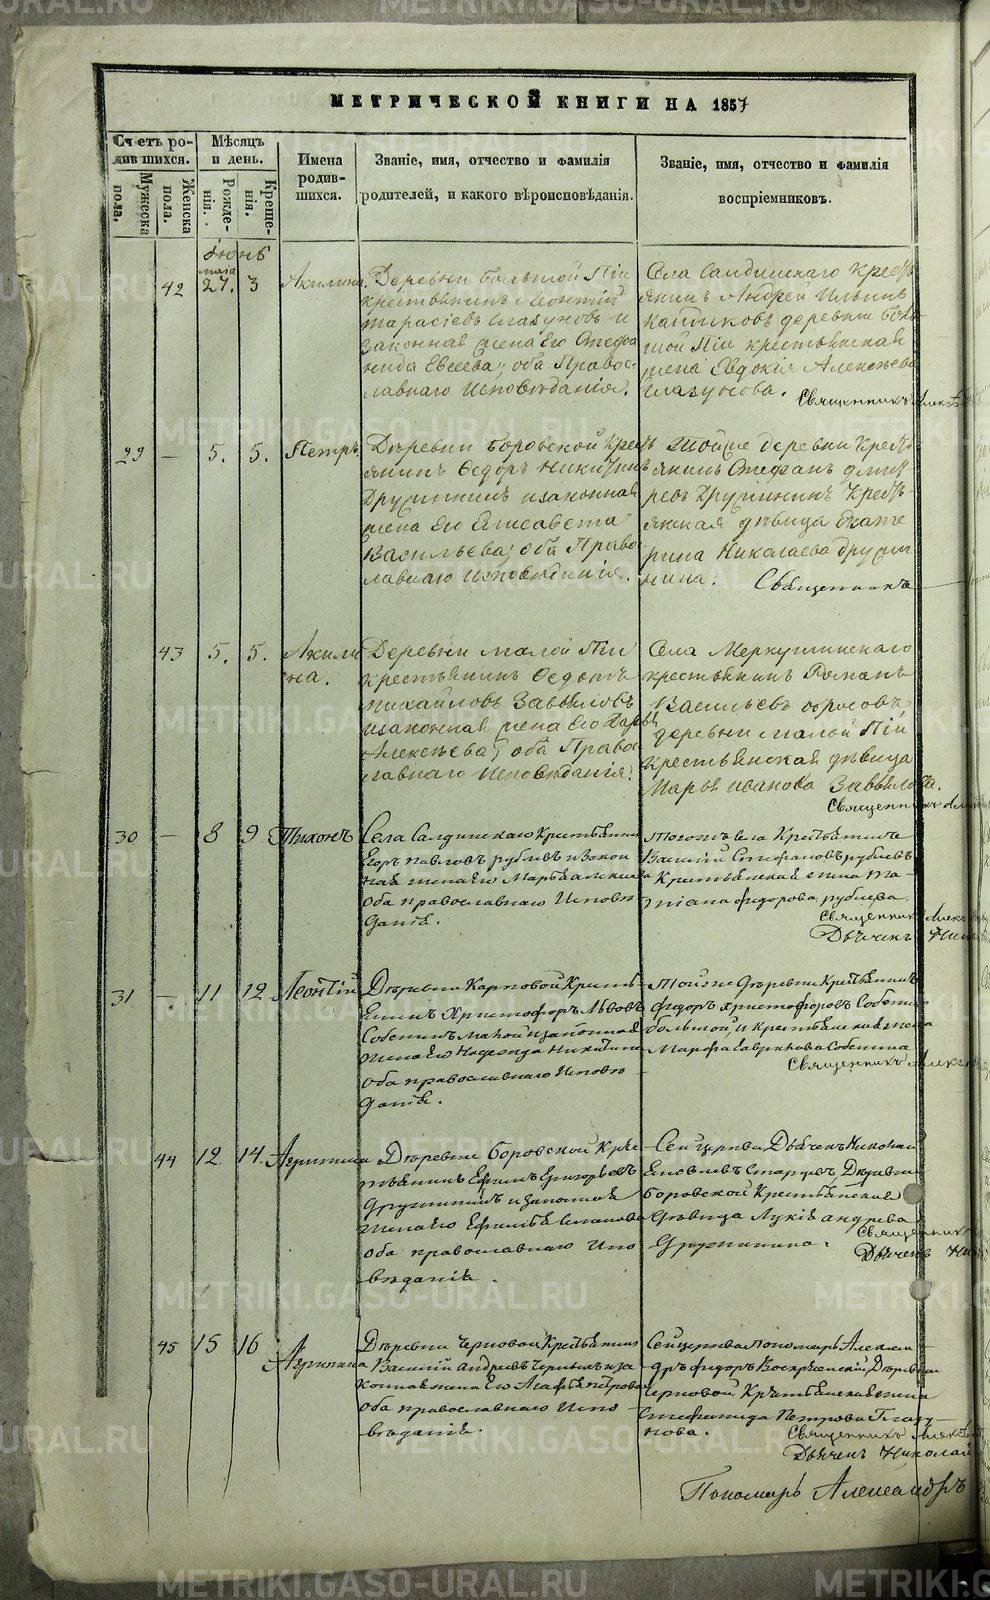 МЕТРИЧЕСКОЙ КНИГИ НА 1857
Счетъ ро-
дившихся.
Мѣсяцъ
и день.
Имена
родив-
шихся.
Званіе, имя, отчество и фамилія
родителей, и какого вѣроисповѣданія.
Званіе, имя, отчество и фамилія
воспріемниковъ.
Мужеска
пола.
Женска
пола.
Рожде-
нія.
Креще-
нія.
Июнь
мая
42
27.
3
Акилина.
Деревни большой Піи
крестьянинъ Леонтій
Тарасіевъ Глазуновъ и
законная жена его Стефа
нида Евсеева; оба Правос-
лавнаго Исповѣданія.
Села Салдинскаго Кресть
янинъ Андрей Ильинъ
деревни Боль-
шой Піи крестьянская
жена Евдокія Алексѣева
Глазунова.
Священникъ Алек
29
—
5.
5.
Петръ
Деревни Боровской Крест
янинъ Ѳедоръ Никитинъ
Дружининъ и законная
жена его Елисавета
Васильева; оба Право
славнаго Исповѣданія.
Тойже деревни Крест
янинъ Стефанъ Дмит
ревъ Дружининъ Кресть-
янская дѣвица Екате
рина Николаева Дружи
нина.
Священникъ
43
5.
5.
Акили
на.
Деревни малой Піи
крестьянинъ Ѳедотъ
Михайловъ Завьяловъ
и законная жена его Дарья
Алексѣева; оба Право
славнаго Исповѣданія.
Села Меркушинскаго
крестьянинъ Романъ
Васильевъ
деревни малой Піи
Крестьянская дѣвица
Марья Иванова Завьялова.
Священникъ
30
—
8
9
Тихонъ
Села Салдинскаго Крестьянинъ
Егоръ Павловъ Рублевъ и Закон
ная жена его Марья
Оба православнаго Исповѣ
данія.
Тогожъ села Крестьянинъ
Василій Стефановъ Рублевъ
Крестьянская жена Та-
тіана Федорова Рублева
Священникъ Алек
Дьячекъ
31
—
11
12
Леонтій
Деревни Карповой Крестья
Христофоръ Львовъ
Собенинъ и законная
жена его Надежда Никитина
Оба православнаго Исповѣ
данія.
Тойже деревни Крестьянинъ
Федоръ Христофоровъ Собенинъ
большой, и Крестьянская жена
Марфа Собенина
Священникъ
44
12
14.
Агрипина
Деревни Боровской Кре
стьянинъ Ефимъ Григорьевъ
Дружининъ и Законная
жена его
Оба православнаго Испо
вѣданія.
Сей церкви Дьячекъ Николай
Яковлевъ Старцевъ, Деревни
Боровской Крестьянская
дѣвица Лукія Андрева
Дружинина.
Священникъ
Дьячекъ
45
15
16
Агрипина
Деревни Черновой Крестьянинъ
Василій Андревъ Черныхъ и за
конная жена его Агафья Петрова
оба православнаго Испо-
вѣданія.
Сей церкви Пономарь Алексан-
дръ Федоръ Воскресенскій, Деревни
Черновой Крестьянская жена
Стефанида Петрова Глазу
нова.
Священникъ Алек
Дьячекъ Николай
Пономарь Александръ
METRIKI.GASO-URAL.RU